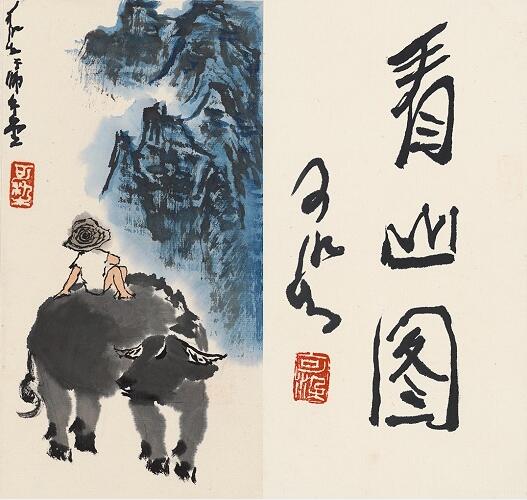 看山图
可染
可染
可染于师牛堂
可染